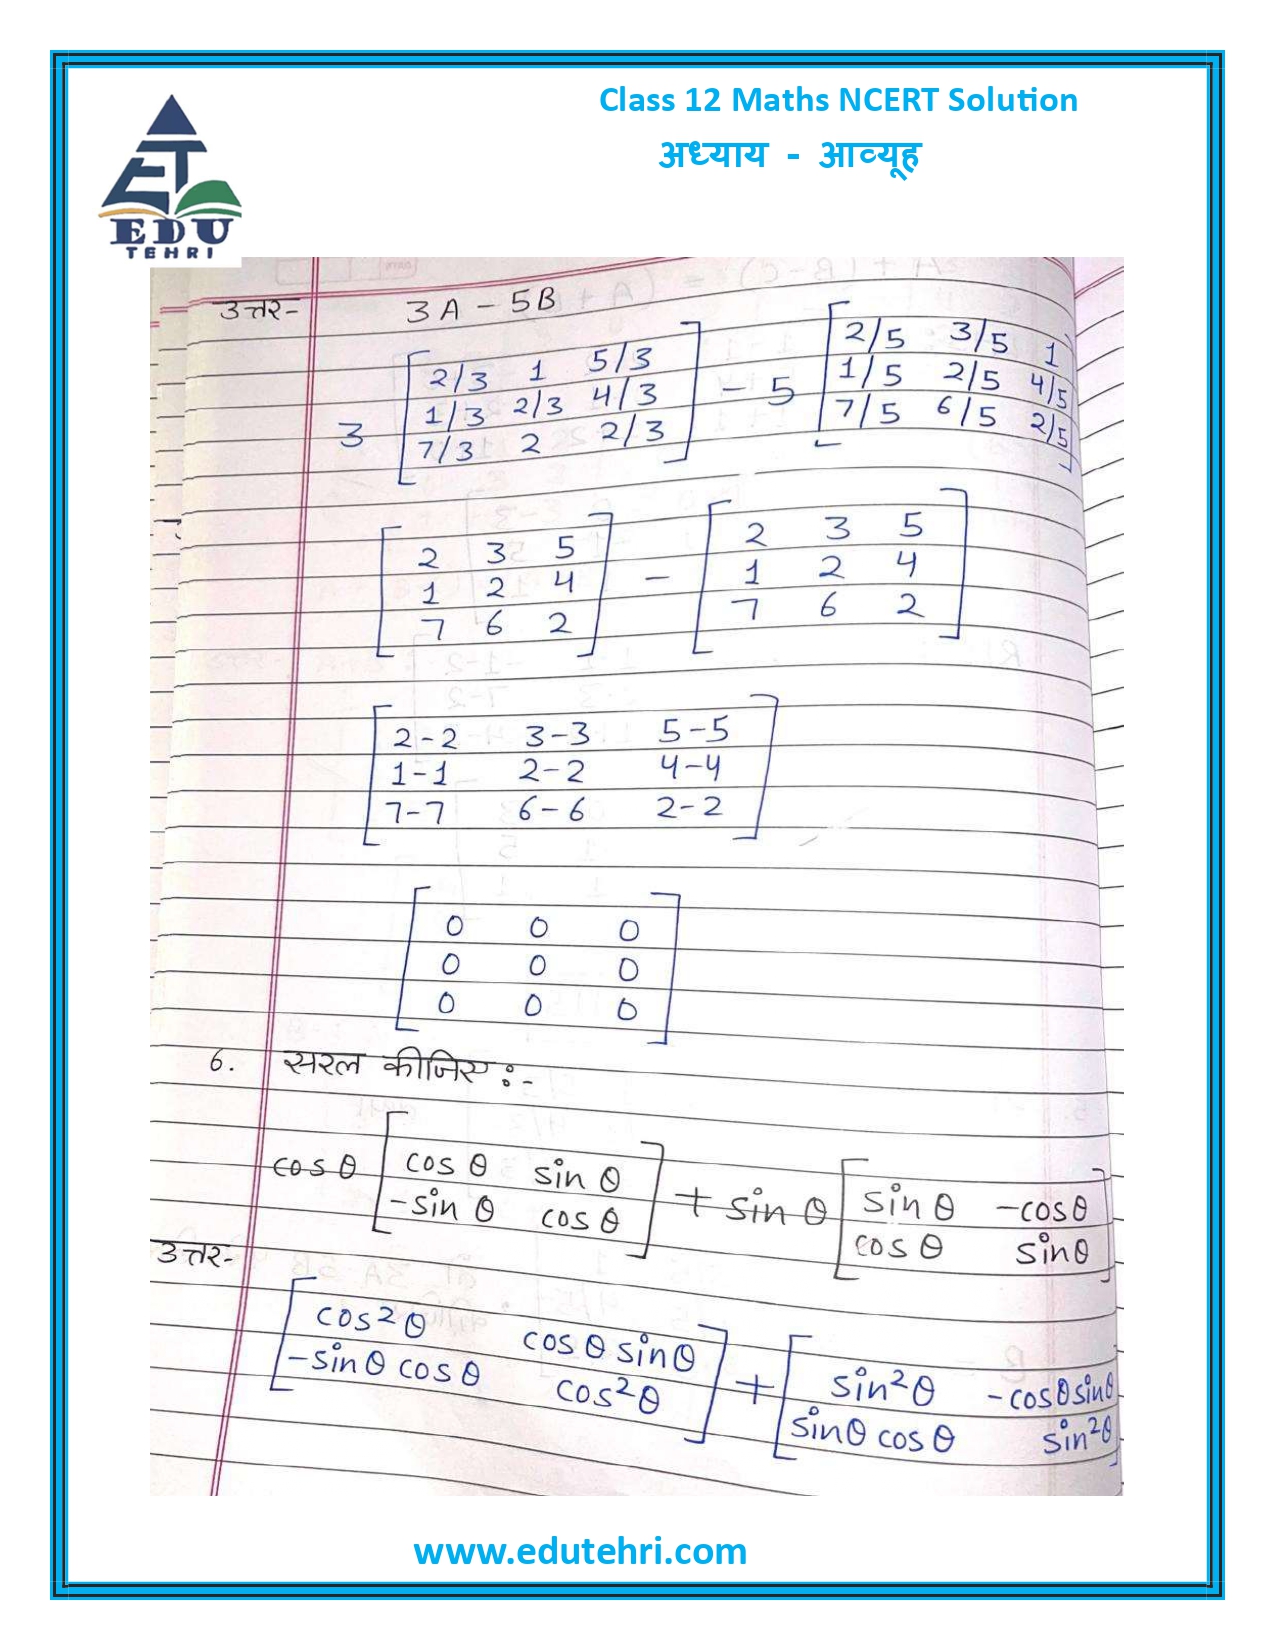 Class 12 Maths NCERT Solution
अध्याय - आव्यूह
EDU
TEHRI
उत्तर- 3A - 5B
3 [2/3 1 5/3
1/3 2/3 4/3
7/3 2 2/3] - 5 [2/5 3/5 1
1/5 2/5 4/5
7/5 6/5 2/5]
[2 3 5
1 2 4
7 6 2] - [2 3 5
1 2 4
7 6 2]
[2-2 3-3 5-5
1-1 2-2 4-4
7-7 6-6 2-2]
[0 0 0
0 0 0
0 0 0]
6. सरल कीजिए :-
cos θ [cos θ sin θ
-sin θ cos θ] + sin θ [sin θ -cosθ
cos θ sinθ]
उत्तर-
[cos²θ cos θ sinθ
-sinθ cosθ cos²θ] + [sin²θ -cosθsinθ
sinθ cosθ sin²θ]
www.edutehri.com